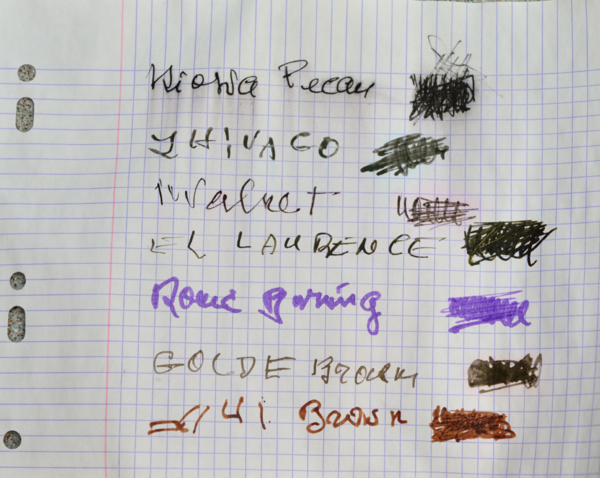 Kiowa Pecan
ZHIVAGO
Walnut
EL LAWRENCE
Rome Burning
GOLDE Brown
41 Brown